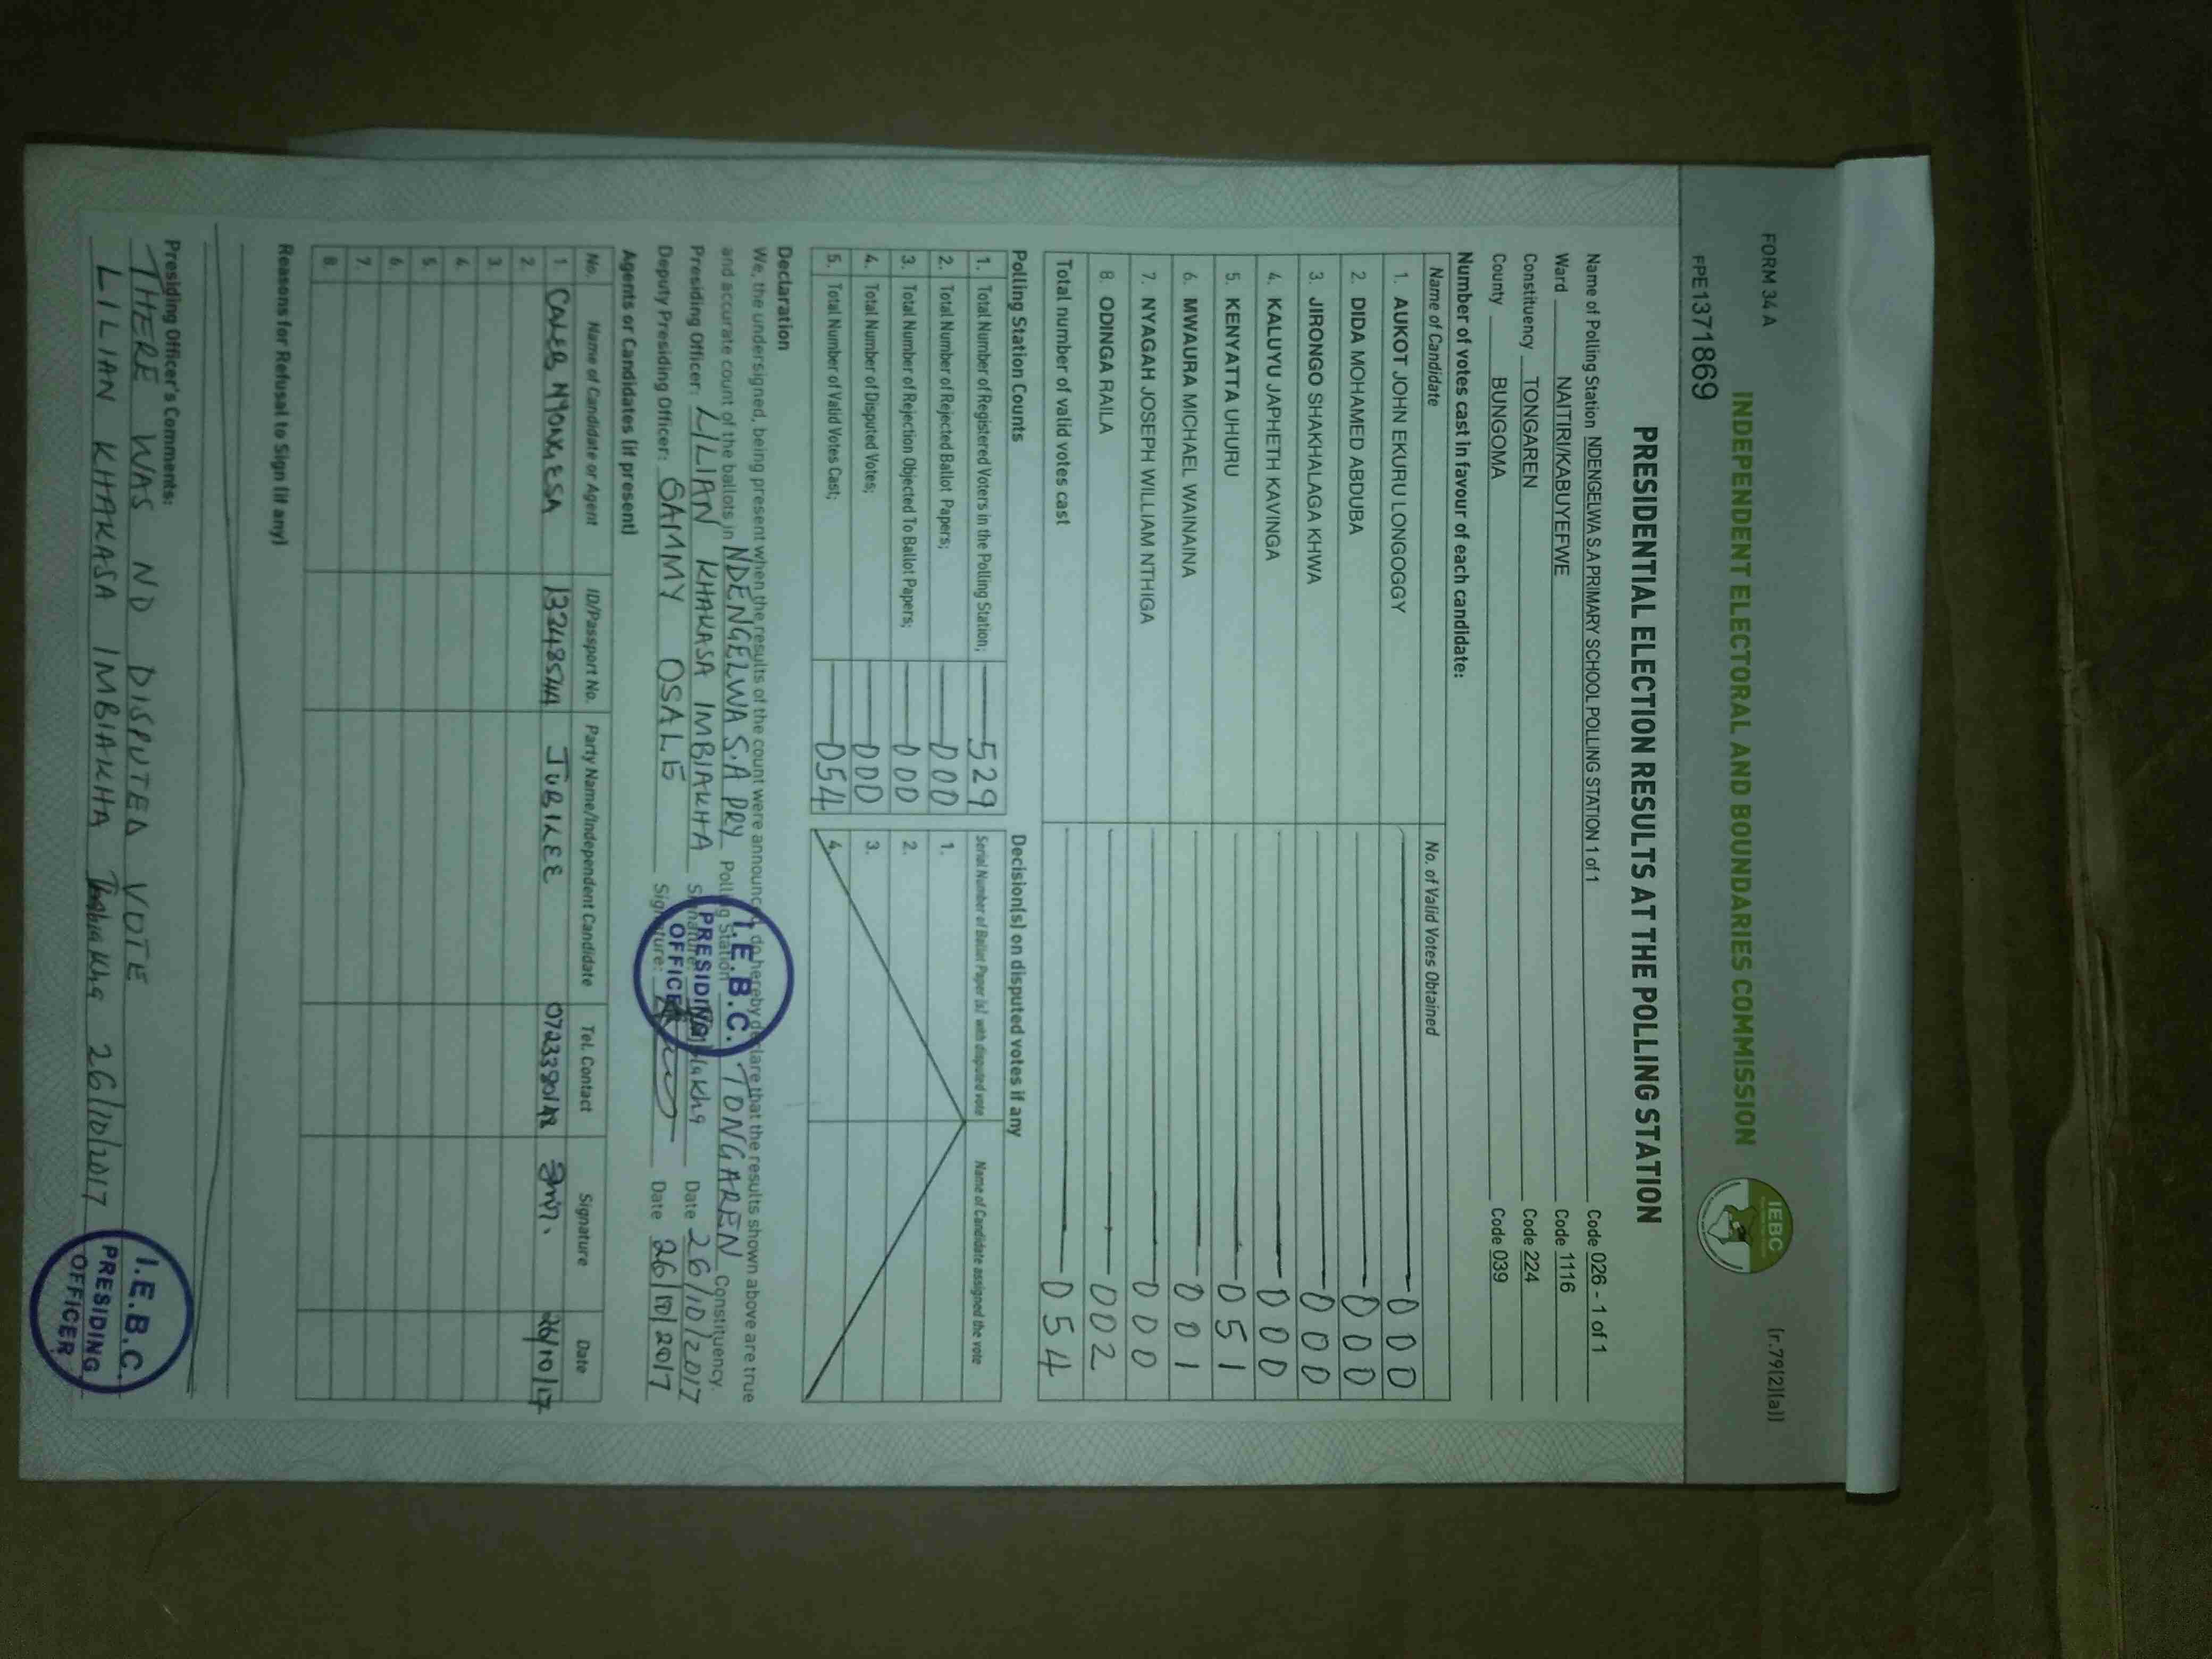 FORM 34 A
(r.79(2)(a))
INDEPENDENT ELECTORAL AND BOUNDARIES COMMISSION
IEBC
FPE1371869
PRESIDENTIAL ELECTION RESULTS AT THE POLLING STATION
Name of Polling Station NDENGELWA S.A PRIMARY SCHOOL POLLING STATION 1 of 1 Code 026 - 1 of 1
Ward NAITIRI/KABUYEFWE Code 1116
Constituency TONGAREN Code 224
County BUNGOMA Code 039
Number of votes cast in favour of each candidate:
Name of Candidate No. of Valid Votes Obtained
1. AUKOT JOHN EKURU LONGOGGY 000
2. DIDA MOHAMED ABDUBA 000
3. JIRONGO SHAKHALAGA KHWA 000
4. KALUYU JAPHETH KAVINGA 000
5. KENYATTA UHURU 051
6. MWAURA MICHAEL WAINAINA 001
7. NYAGAH JOSEPH WILLIAM NTHIGA 000
8. ODINGA RAILA 002
Total number of valid votes cast 054
Polling Station Counts
1. Total Number of Registered Voters in the Polling Station; 529
2. Total Number of Rejected Ballot Papers; 000
3. Total Number of Rejection Objected To Ballot Papers; 000
4. Total Number of Disputed Votes; 000
5. Total Number of Valid Votes Cast; 054
Decision(s) on disputed votes if any
Serial Number of Ballot Paper (s) with disputed vote Name of Candidate assigned the vote
1.
2.
3.
4.
Declaration
We, the undersigned, being present when the results of the count were announced, do hereby declare that the results shown above are true
and accurate count of the ballots in NDENGELWA S.A PRY Polling Station TONGAREN Constituency.
Presiding Officer: LILIAN KHAKASA IMBIAKHA Signature: Date 26/10/2017
Deputy Presiding Officer: SAMMY OSALE Signature: Date 26/10/2017
I.E.B.C.
PRESIDING
OFFICER
Agents or Candidates (if present)
No. Name of Candidate or Agent ID/Passport No. Party Name/Independent Candidate Tel. Contact Signature Date
1. CALEB JUBILEE 26/10/17
2.
3.
4.
5.
6.
7.
8.
Reasons for Refusal to Sign (if any)
Presiding Officer's Comments:
THERE WAS NO DISPUTED VOTE
LILIAN KHAKASA IMBIAKHA 26/10/2017
I.E.B.C.
PRESIDING
OFFICER